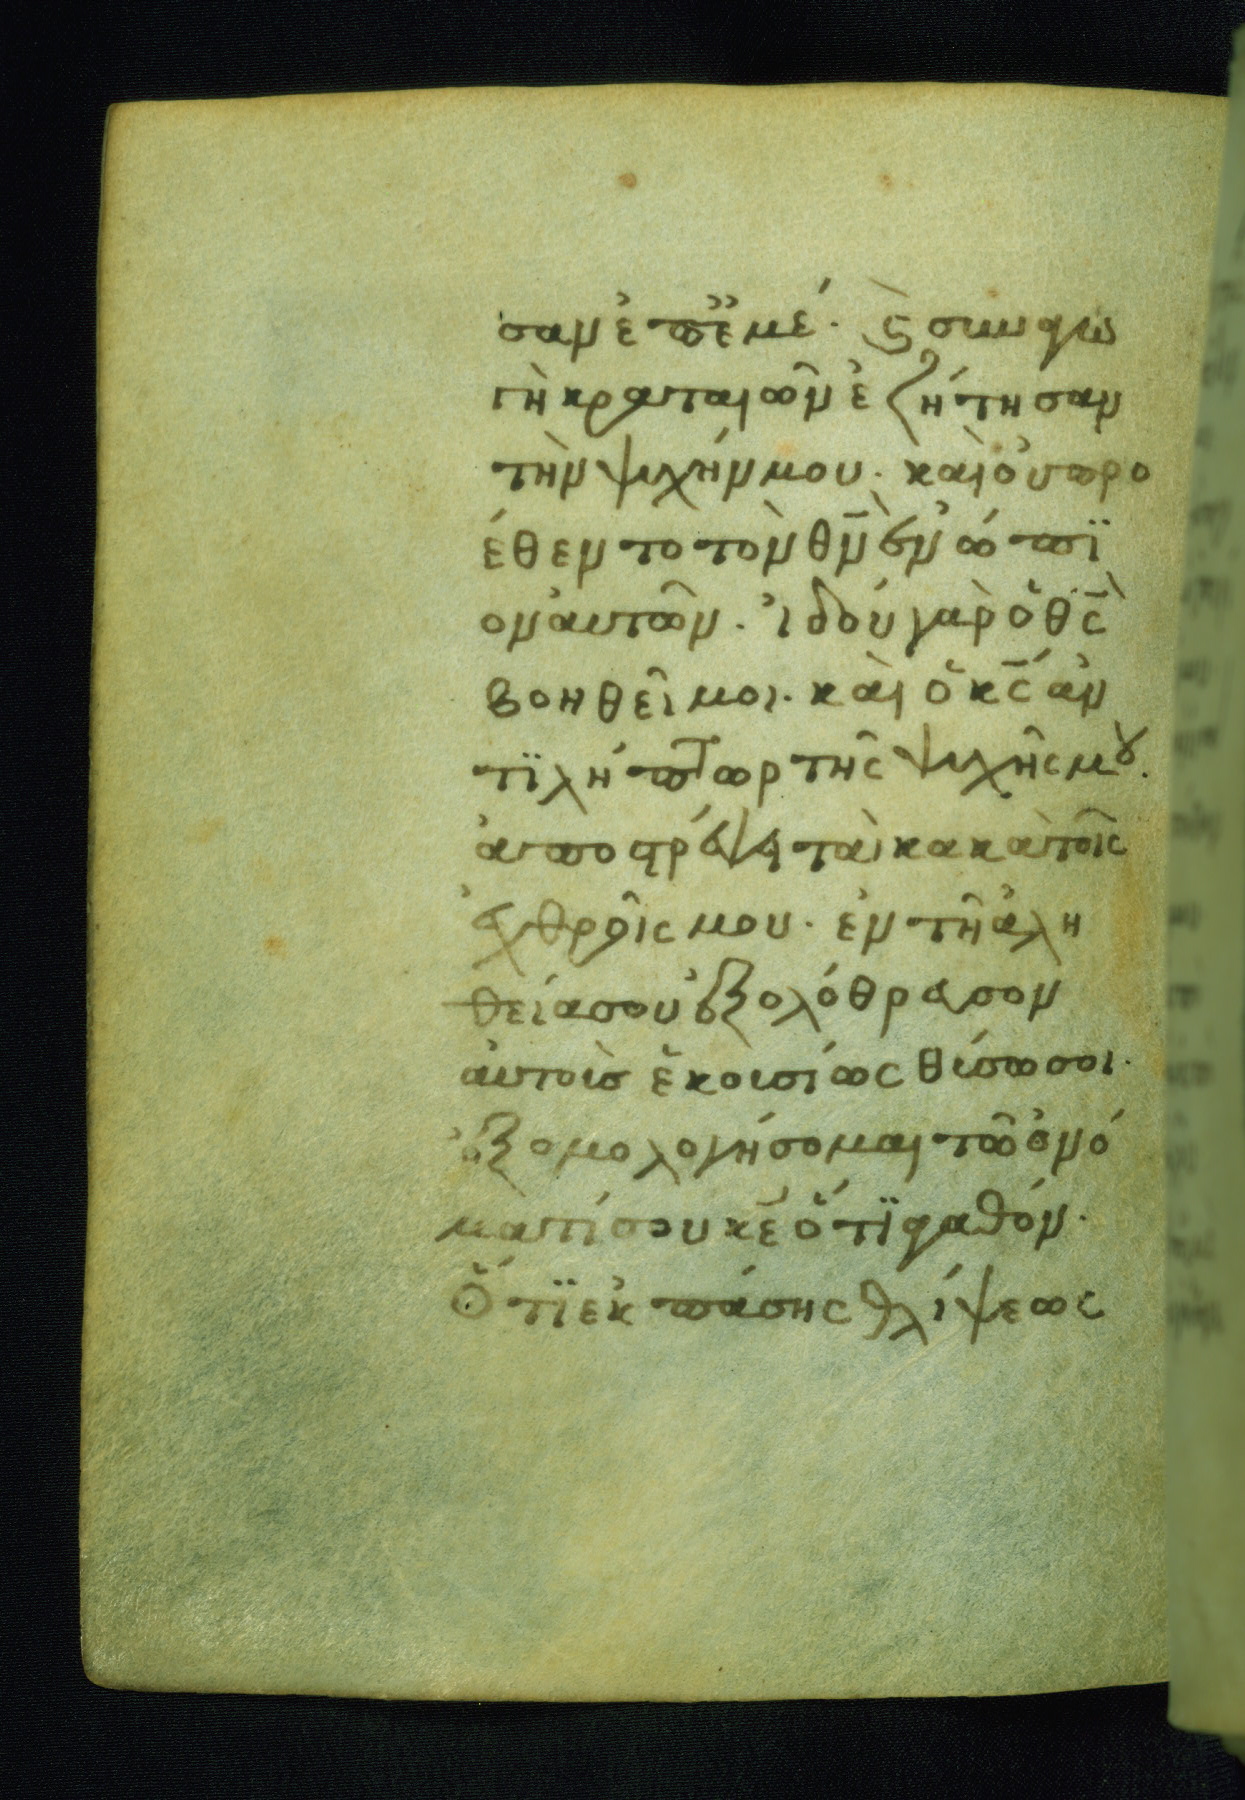 σαν ἐπ ἐμέ. ϛ συναγω
γὴ κραταιῶν ἐζήτησαν
τὴν ψυχήν μου. καὶ οὐ προ
έθεντο τὸν θν̅ ἐνώπϊ
ον αὐτῶν. ἰδού γὰρ ὁ θς̅
βοηθεῖ μοι. καὶ ὁ κς̅ ἀν
τϊλήπτωρ τῆς ψυχῆς μου.
ἀποστρέψει τὰ κακὰ τοῖς
ἐχθροῖς μου. ἐν τῆ ἀλη
θεία σου ἐξολόθρευσον
αὐτοὺσ ἑκουσίως θύσω σοι.
ἐξομολογήσομαι τῶ ὀνό
ματί σου κε̅ ὅτϊ ἀγαθόν.
Ὅτϊ ἐκ πάσης θλίψεως